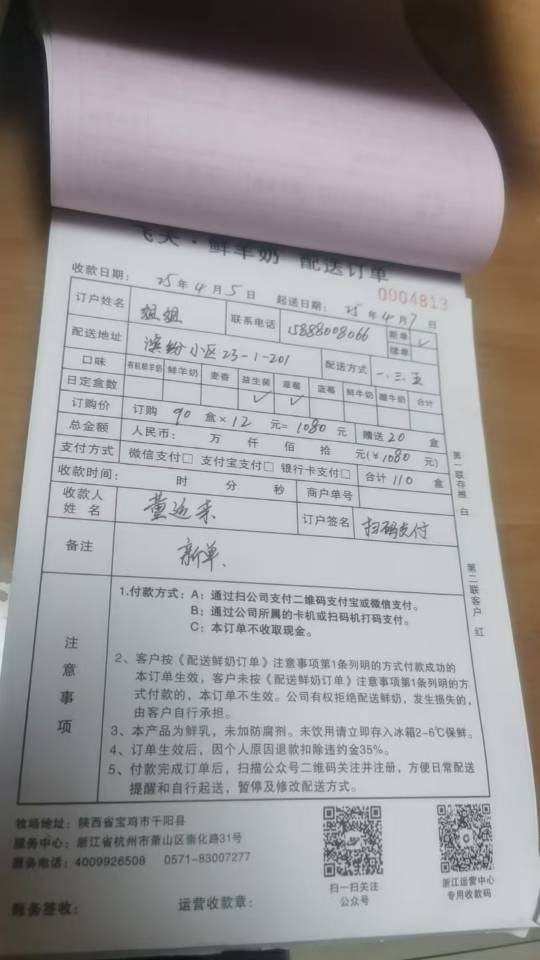 飞天·鲜羊奶 配送订单
0004813
收款日期： 25年4月5日 起送日期： 25年4月7日
订户姓名 姐姐 联系电话 15888008066 新单 ✓ 续单
配送地址 滨纷小区23-1-201 配送方式 一.三.五
口味 有机鲜羊奶 鲜羊奶 麦香 益生菌 草莓 蓝莓 鲜牛奶 酸牛奶 合计
日定盒数 ✓ ✓
订购价 订购 90 盒×12 元= 1080 元 赠送 20 盒
总金额 人民币： 万 仟 佰 拾 元(￥1080 元)
支付方式 微信支付□ 支付宝支付□ 银行卡支付□ 合计 110 盒
收款时间： 时 分 秒 商户单号
收款人姓名 董 订户签名 扫码支付
备注 新单.
第一联存根 白
第二联客户 红
注意事项
1.付款方式：A：通过扫公司支付二维码支付宝或微信支付。
B：通过公司所属的卡机或扫码机打码支付。
C：本订单不收取现金。
2、客户按《配送鲜奶订单》注意事项第1条列明的方式付款成功的
本订单生效，客户未按《配送鲜奶订单》注意事项第1条列明的方
式付款的，本订单不生效。公司有权拒绝配送鲜奶，发生损失的，
由客户自行承担。
3、本产品为鲜乳，未加防腐剂。未饮用请立即存入冰箱2-6℃保鲜。
4、订单生效后，因个人原因退款扣除违约金35%。
5、付款完成订单后，扫描公众号二维码关注并注册，方便日常配送
提醒和自行起送，暂停及修改配送方式。
牧场地址：陕西省宝鸡市千阳县
服务中心：浙江省杭州市萧山区崇化路31号
服务电话：4009926508 0571-83007277
扫一扫关注
公众号
浙江运营中心
专用收款码
账务签收： 运营收款章：